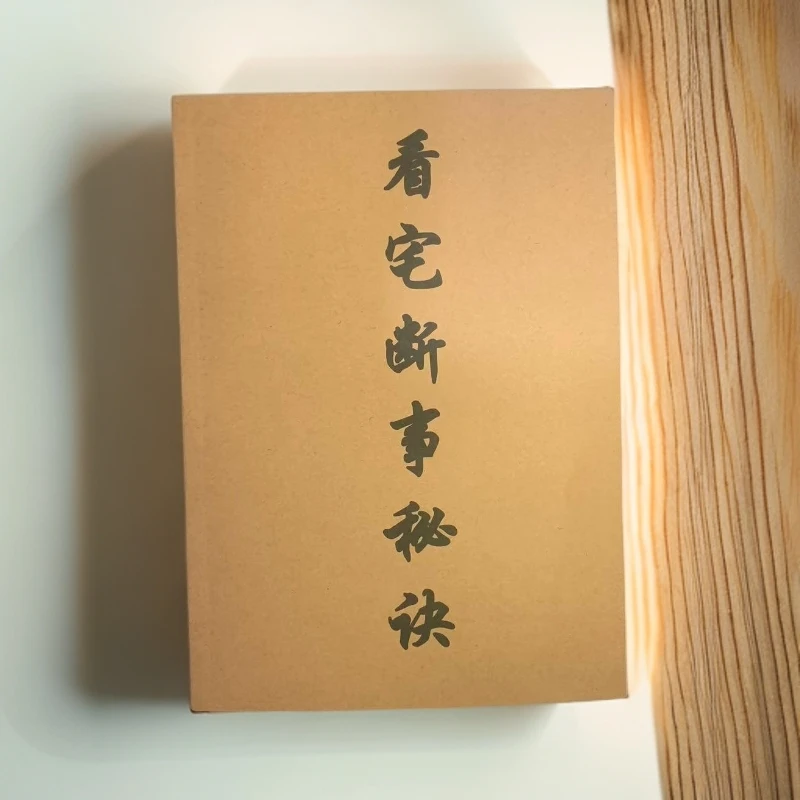 看宅断事秘诀